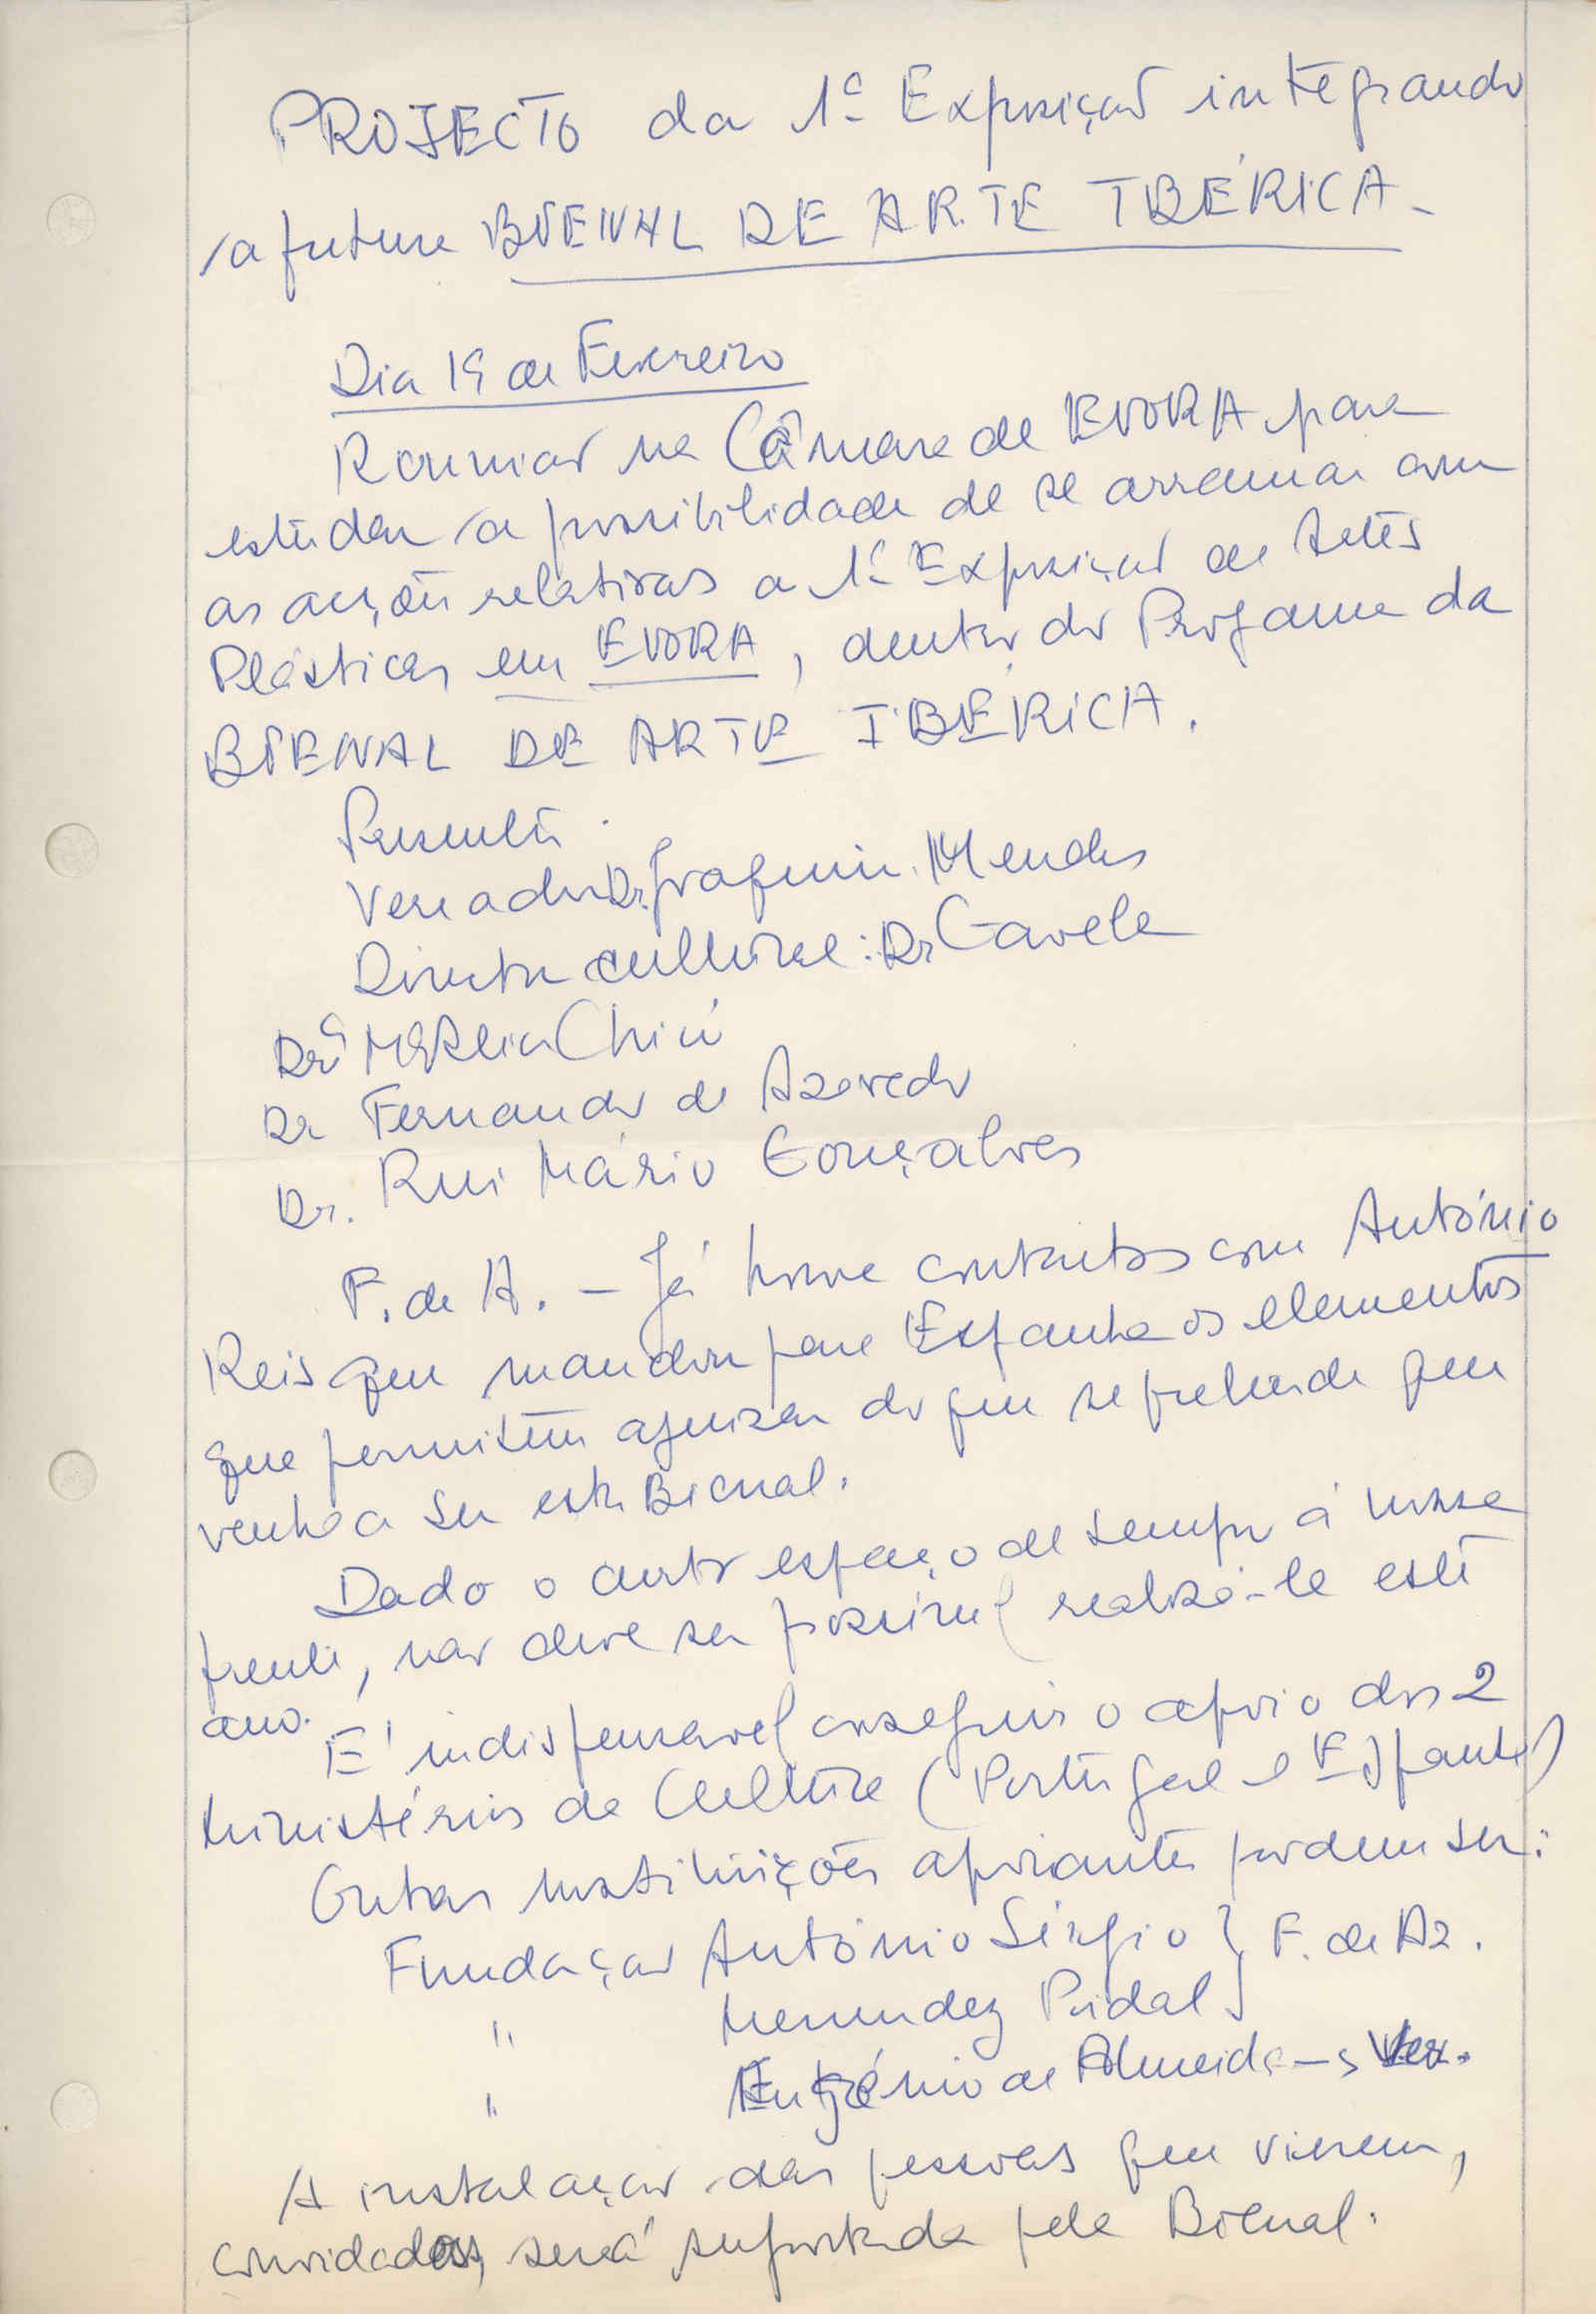 PROJECTO da 1ª Exposição integrando
a futura BIENAL DE ARTE IBÉRICA -
Dia 19 de Fevereiro
Reunião na Câmara de EVORA para
estudar a possibilidade de se arrancar com
as acções relativas a 1ª Exposição de Artes
Plásticas em EVORA, dentro do Programa da
BIENAL DE ARTE IBÉRICA.
Presentes
Vereador Dr. Joaquim Mendes
Director cultural: Dr
Drª Mª Alia Chicó
Dr Fernando de Azevedo
Dr. Rui Mário Gonçalves
F. de A. - Já houve contactos com António
Reis que mandou para Espanha os elementos
que permitem ajuizar do que se pretende que
venha a ser esta Bienal.
Dado o curto espaço de tempo à nossa
frente, não deve ser possível realizá-la este
ano.
É indispensavel conseguir o apoio dos 2
Ministérios da Cultura (Portugal e Espanha)
Outras instituições apoiantes podem ser:
Fundação António Sérgio } F. de Az.
" Menendez Pidal
" Eugénio de Almeida - Ver.
A instalação das pessoas que vierem,
convidadas, será suportada pela Bienal.